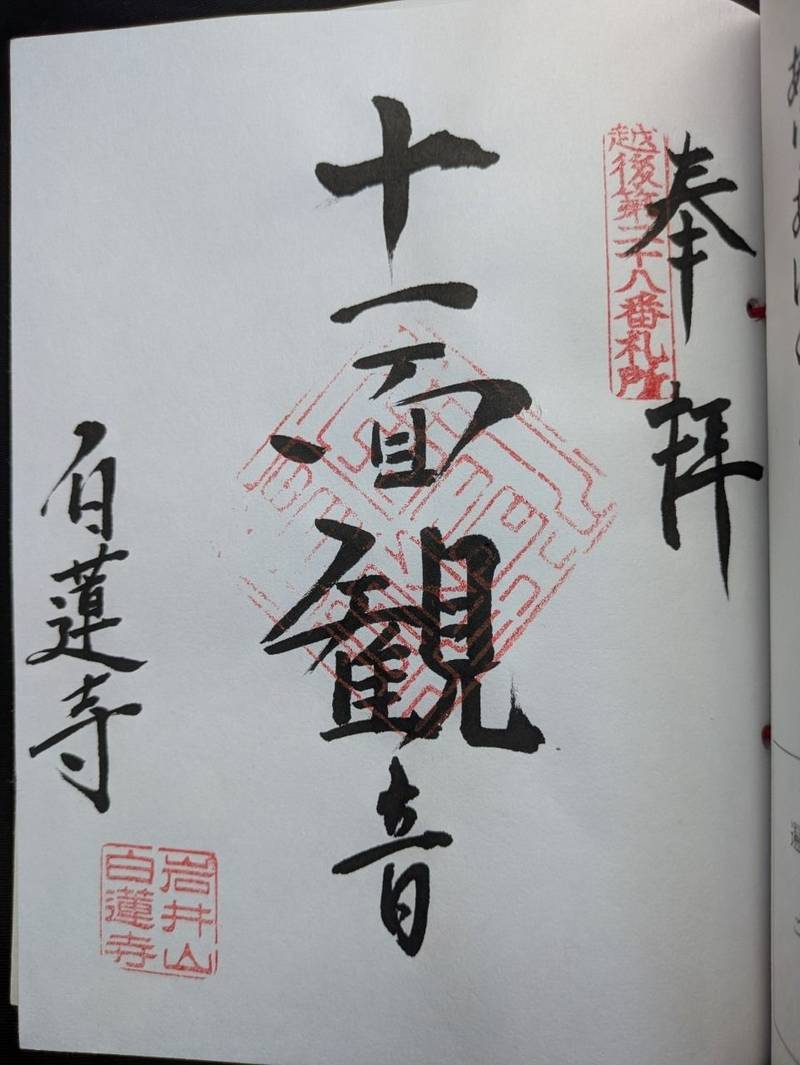 奉拝
越後第二十八番札所
十一面観音
白蓮寺
岩井山
白蓮寺